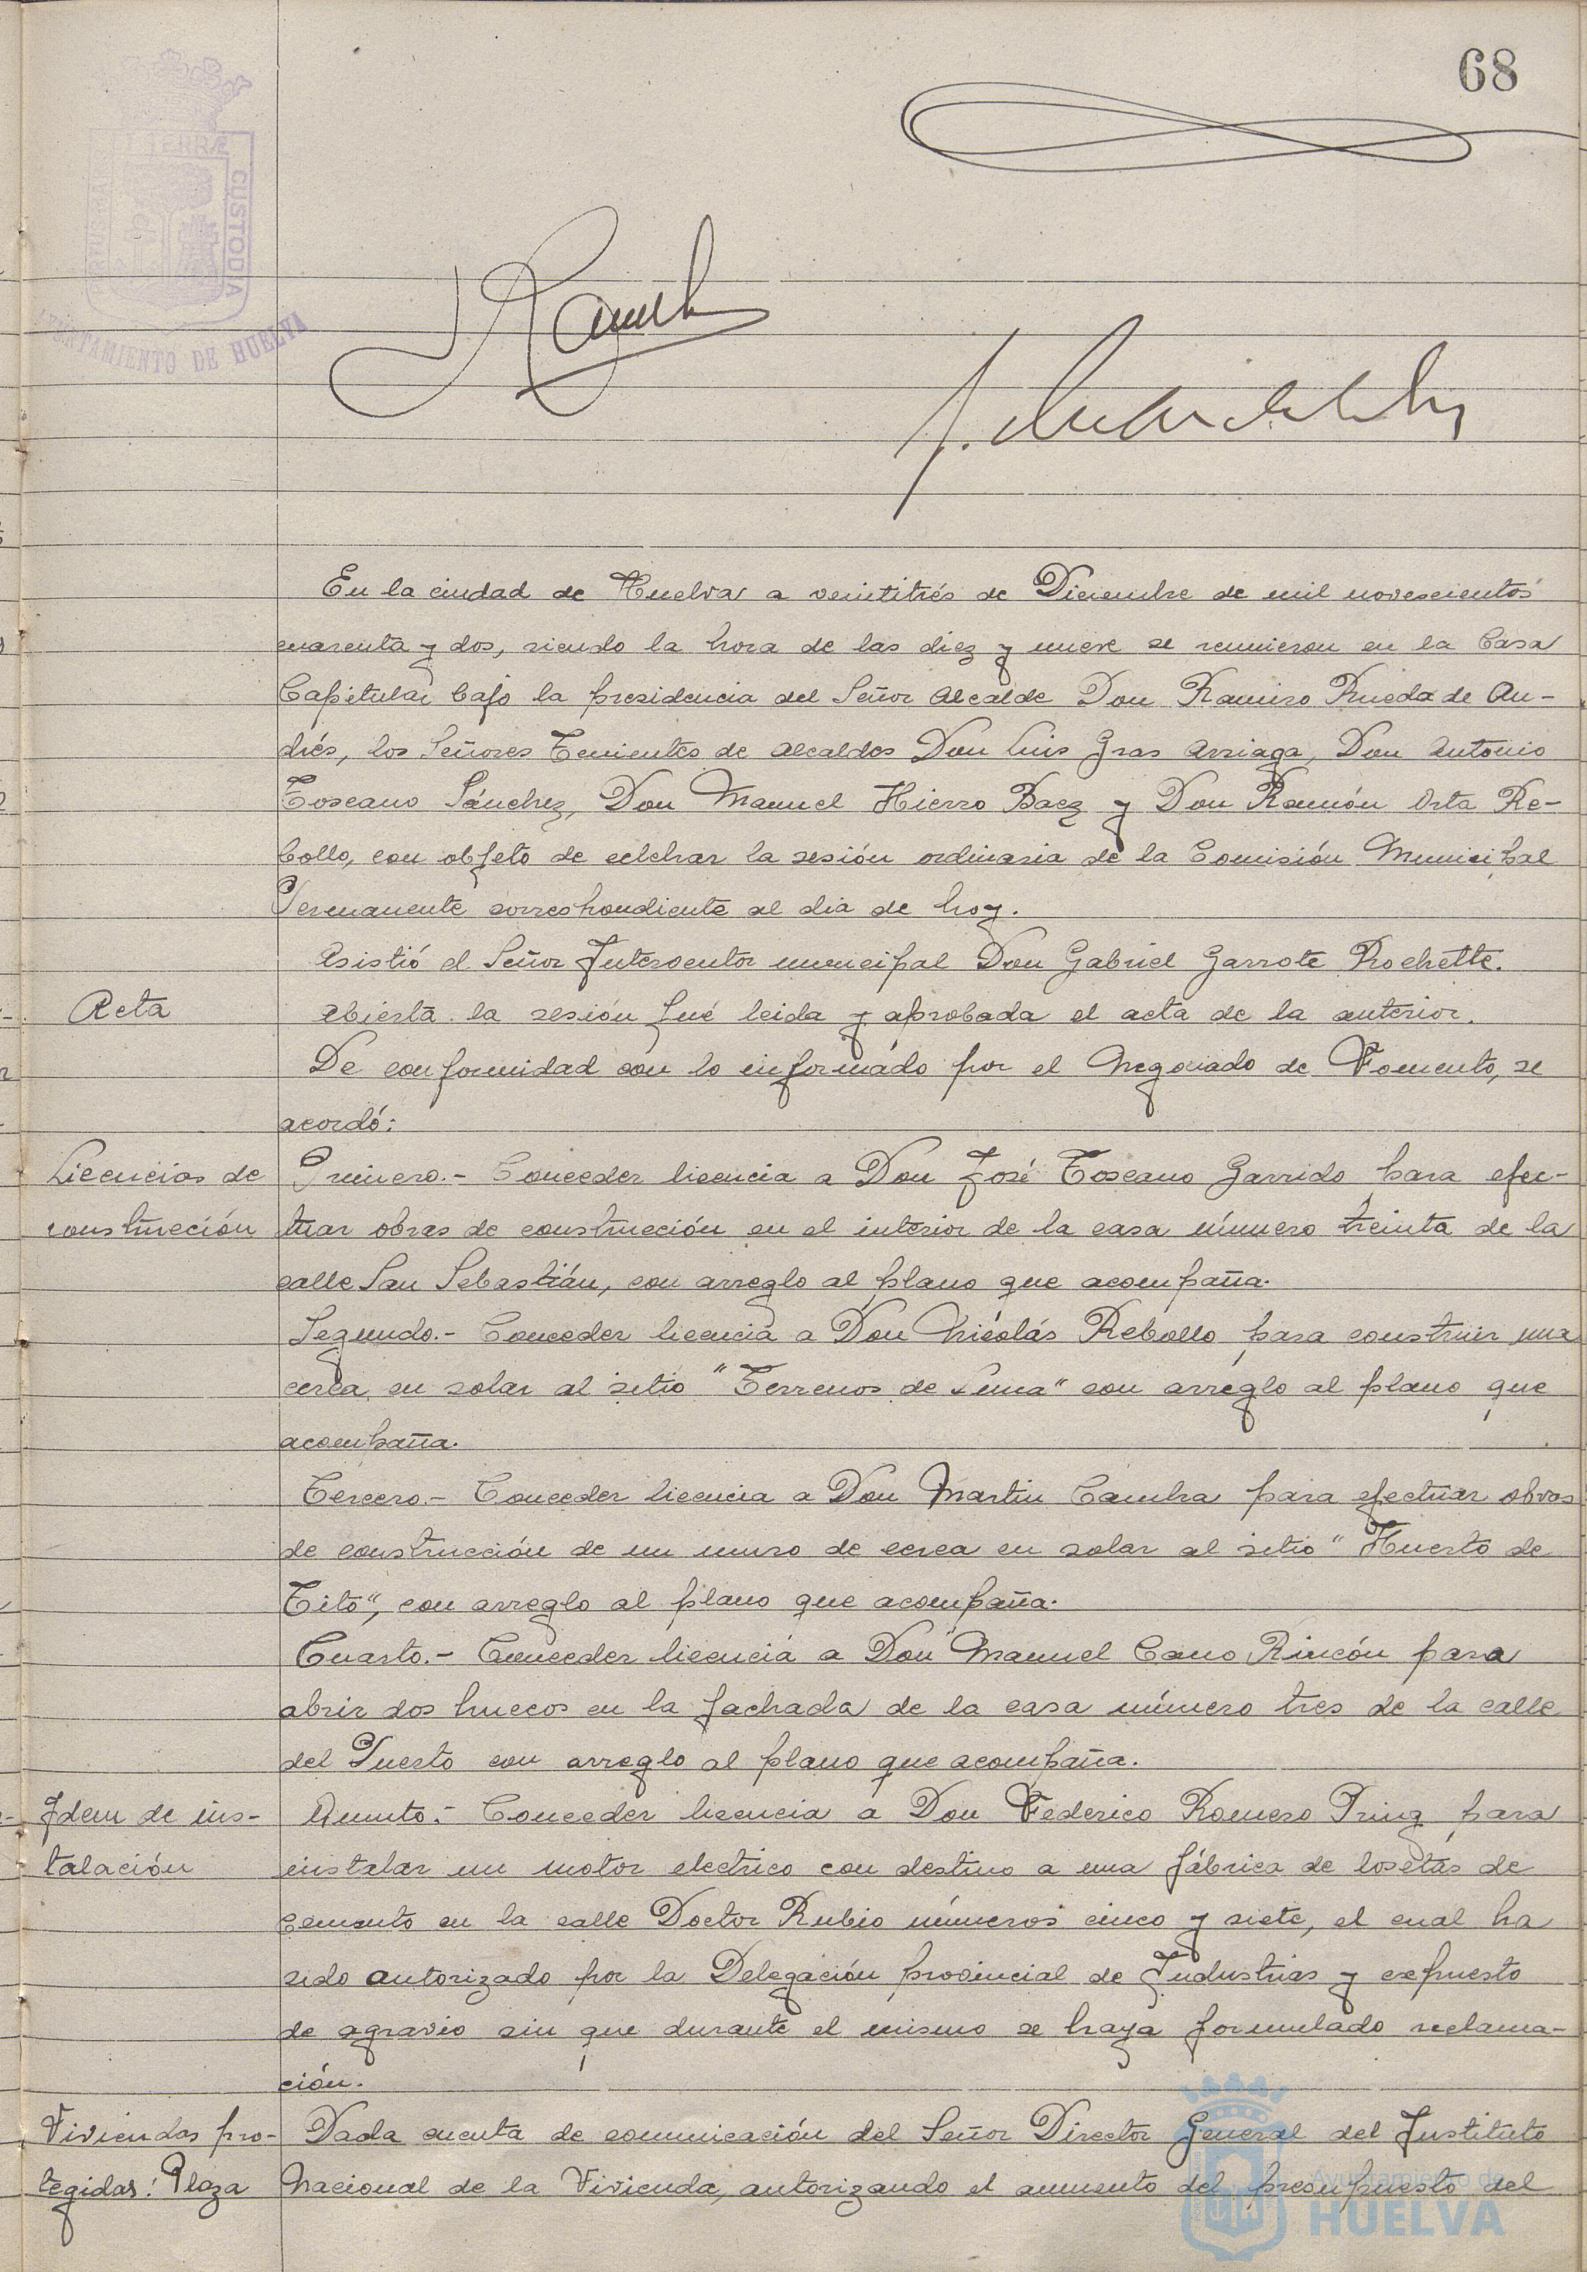 68
PORTUS MARIS ET TERRÆ CUSTODIA
AYUNTAMIENTO DE HUELVA
En la ciudad de Huelva a veintitrés de Diciembre de mil novescientos
cuarenta y dos, siendo la hora de las diez y nueve se reunieron en la Casa
Capitular bajo la presidencia del Señor Alcalde Don Ramiro Rueda de An-
drés, los Señores Tenientes de Alcaldes Don Luis Gras Arriaga, Don Antonio
Toscano Sánchez, Don Manuel Hierro Baez y Don Ramón Orta Re-
bollo, con objeto de celebrar la sesión ordinaria de la Comisión Municipal
Permanente correspondiente al dia de hoy.
Asistió el Señor Interventor municipal Don Gabriel Garrote Rochette.
Acta
Abierta la sesión fué leida y aprobada el acta de la anterior.
De conformidad con lo informado por el Negociado de Fomento, se
acordó:
Licencias de
construcción
Primero.- Conceder licencia a Don José Toscano Garrido para efec-
tuar obras de construcción en el interior de la casa número treinta de la
calle San Sebastián, con arreglo al plano que acompaña.
Segundo.- Conceder licencia a Don Nicolás Rebollo para construir una
cerca en solar al sitio "Terrenos de Luna" con arreglo al plano que
acompaña.
Tercero.- Conceder licencia a Don Martin Cambra para efectuar obras
de construcción de un muro de cerca en solar al sitio "Huerto de
Tito", con arreglo al plano que acompaña.
Cuarto.- Conceder licencia a Don Manuel Cano Rincón para
abrir dos huecos en la fachada de la casa número tres de la calle
del Puerto con arreglo al plano que acompaña.
Idem de ins-
talación
Quinto.- Conceder licencia a Don Federico Romero Pring para
instalar un motor electrico con destino a una fábrica de losetas de
cemento en la calle Doctor Rubio números cinco y siete, el cual ha
sido autorizado por la Delegación provincial de Industrias y expuesto
de agravio sin que durante el mismo se haya formulado reclama-
ción.
Viviendas pro-
tegidas: Plaza
Dada cuenta de comunicación del Señor Director General del Instituto
Nacional de la Vivienda, autorizando el aumento del presupuesto del
Ayuntamiento de
HUELVA